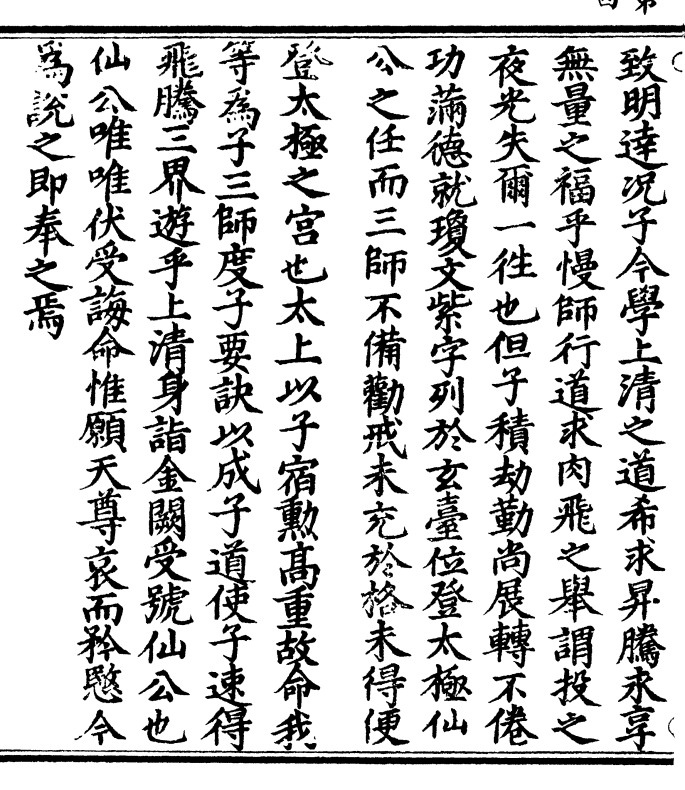 致明達況子今學上清之道希求昇騰求享
無量之福乎慢師行道求肉飛之舉謂投之
夜光失爾一徃也但子積劫勤尚展轉不倦
功滿德就瓊文紫字列於玄臺位登太極仙
公之任而三師不備勸戒未充於格未得便
登太極之宮也太上以子宿勲髙重故命我
等為子三師度子要訣以成子道使子速得
飛騰三界遊乎上清身詣金闕受號仙公也
仙公唯唯伏受誨命惟願天尊哀而矜愍今
為說之即奉之焉